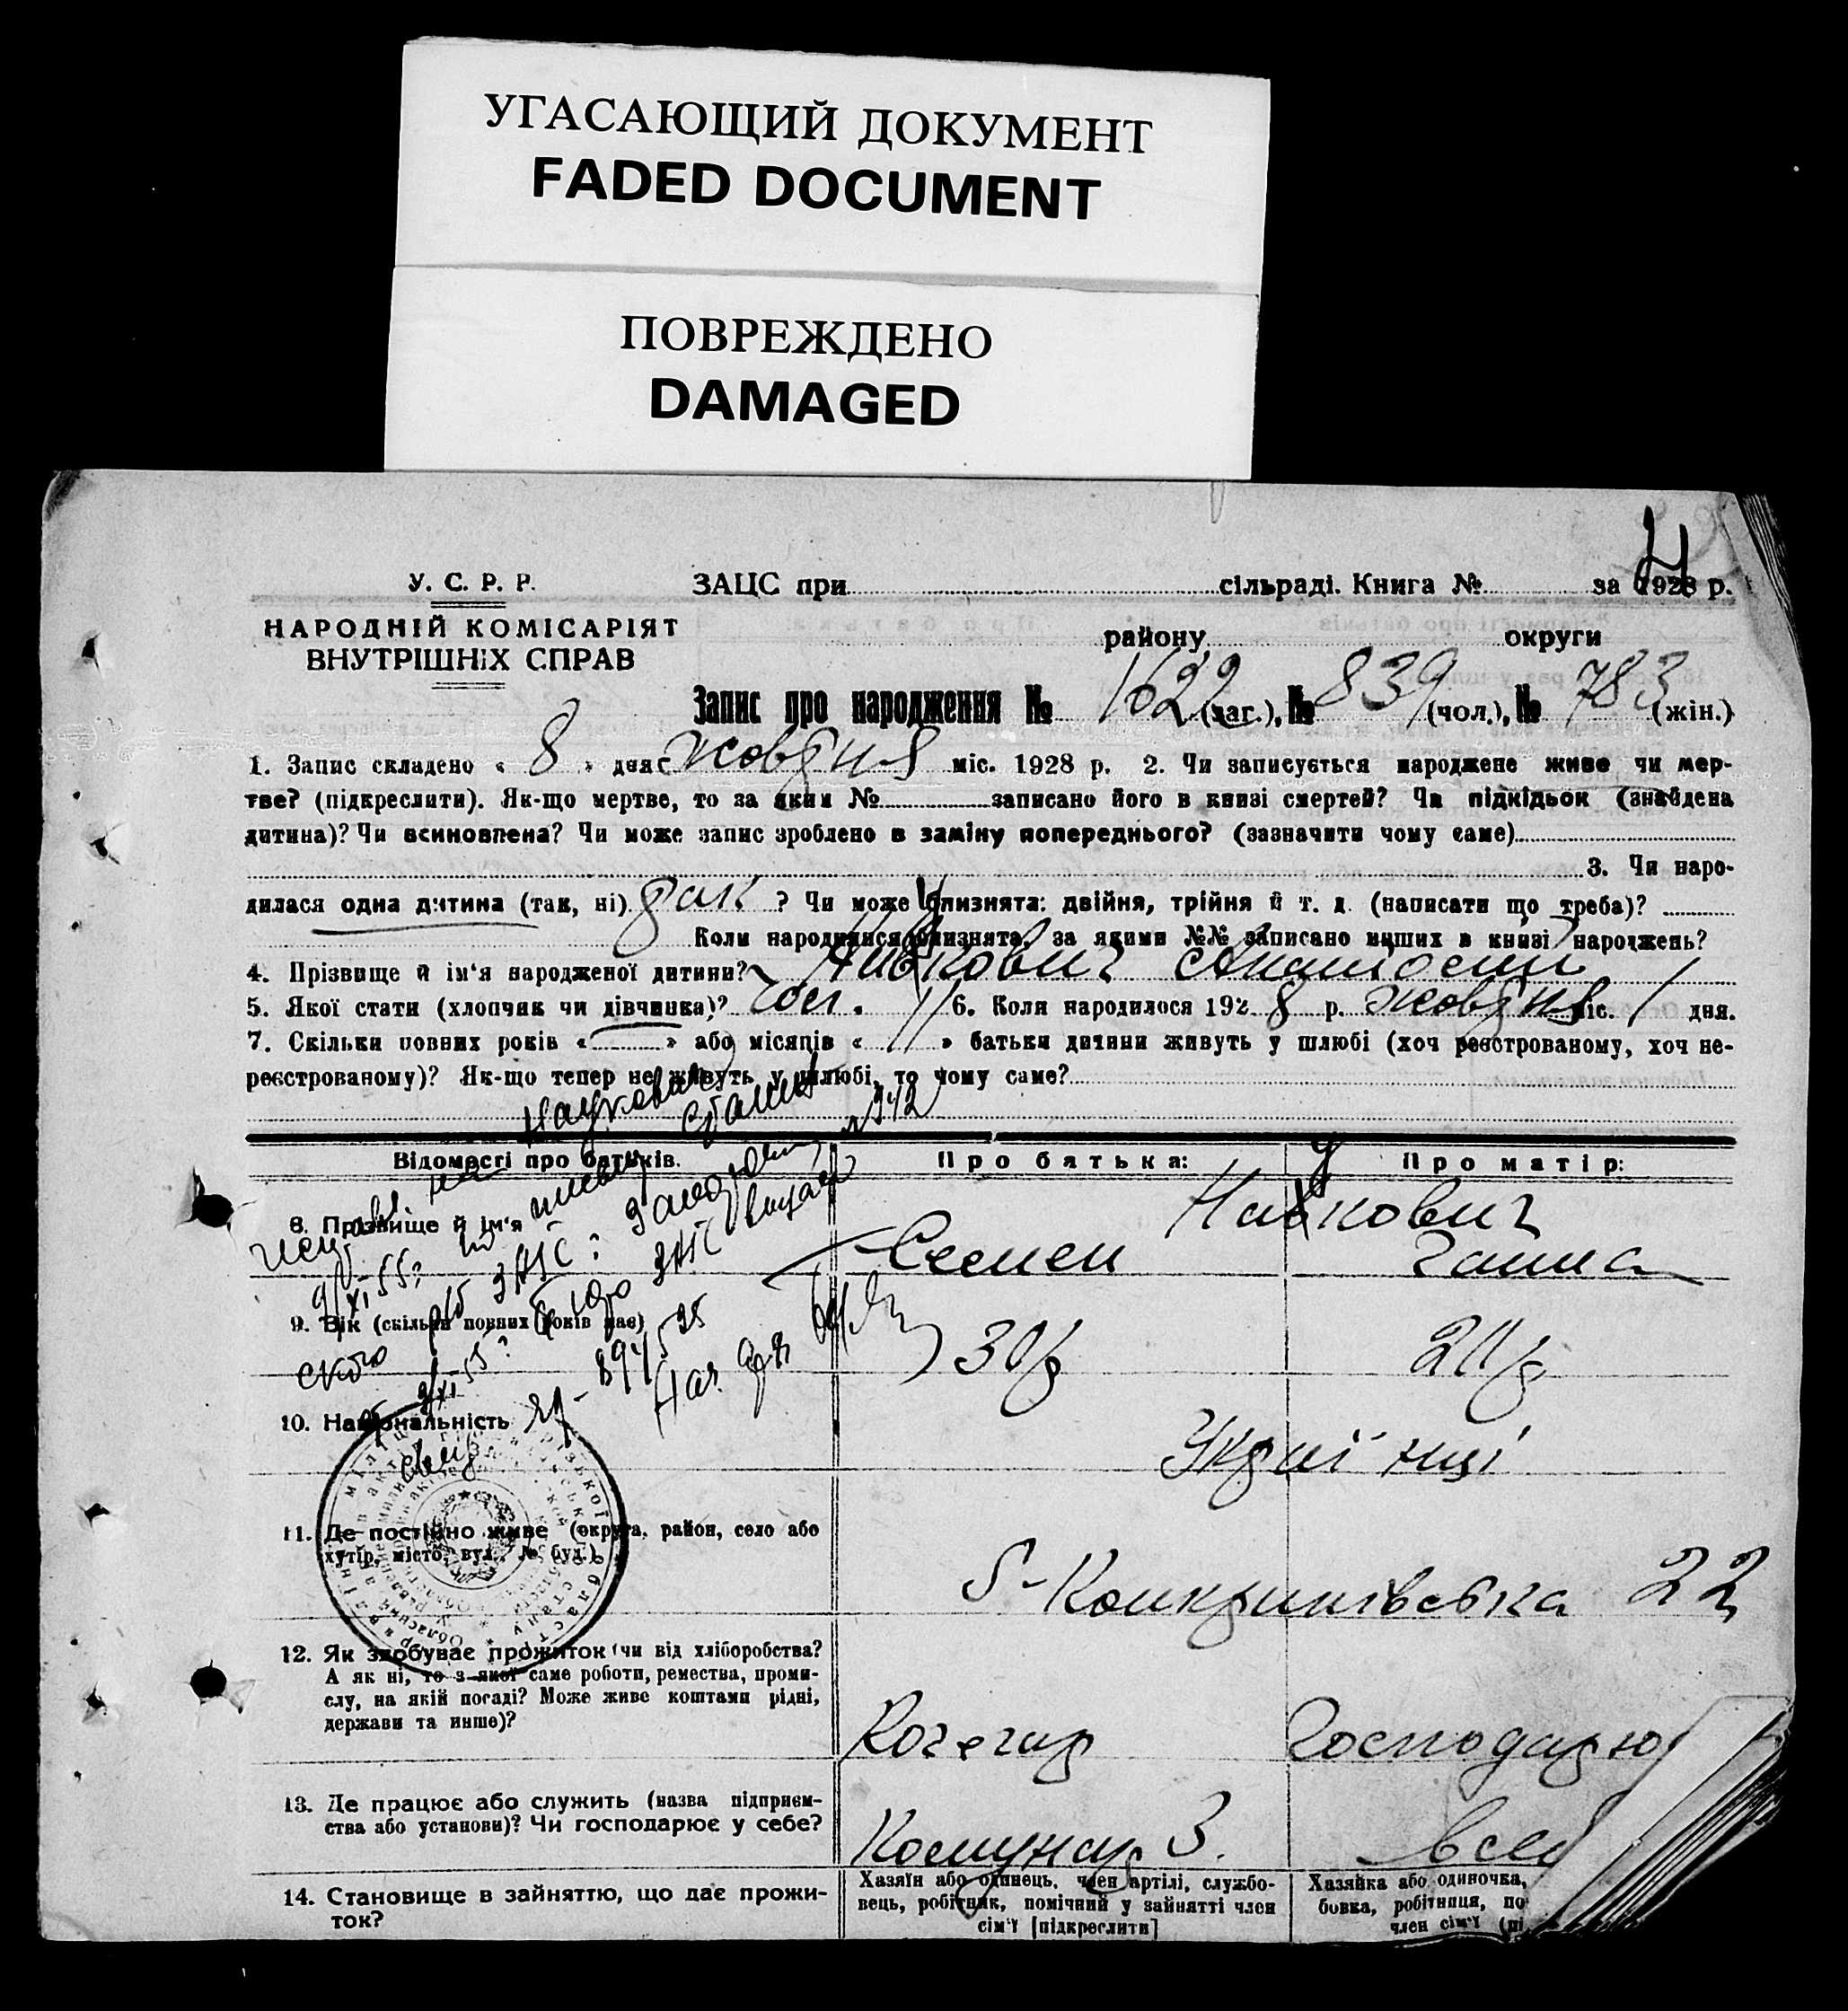 УГАСАЮЩИЙ ДОКУМЕНТ
FADED DOCUMENT
ПОВРЕЖДЕНО
DAMAGED
У. С. Р. Р.
НАРОДНІЙ КОМІСАРІЯТ
ВНУТРІШНІХ СПРАВ
ЗАЦС при сільраді. Книга № за 1928 р.
району округи
Запис про народження № 1622 (заг.), № 839 (чол.), № 783 (жін.)
1. Запис складено « 8 » дня жовтня міс. 1928 р. 2. Чи записується народжене живе чи мер-
тве? (підкреслити). Як-що мертве, то за яким № записано його в книзі смертей? Чи підкідьок (знайдена
дитина)? Чи всиновлена? Чи може запис зроблено в заміну попереднього? (зазначити чому саме)
3. Чи наро-
дилася одна дитина (так, ні) так ? Чи може близнята: двійня, трійня й т. д. (написати що треба)?
Коли народилися близнята, за якими №№ записано инших в книзі народжень?
4. Прізвище й ім'я народженої дитини? Анатолій
5. Якої стати (хлопчик чи дівчинка)? чол. 6. Коли народилося 192 8 р. жовтня міс. 1 дня.
7. Скільки повних років « — » або місяців « 11 » батьки дитини живуть у шлюбі (хоч реєстрованому, хоч не-
реєстрованому)? Як-що тепер не живуть у шлюбі, то чому саме?
Відомості про батьків. Про батька: Про матір:
8. Прізвище й ім'я
Семен Ганна
9. Вік (скільки повних років має) 30
10. Національність Українці
11. Де постійно живе (округа, район, село або
хутір, місто, вул., № буд.) 22
12. Як здобуває прожиток (чи від хліборобства?
А як ні, то з якої саме роботи, ремества, проми-
слу, на якій посаді? Може живе коштами рідні,
держави та инше)?
Кочегар Господарю
13. Де працює або служить (назва підприєм-
ства або установи)? Чи господарює у себе?
Комунар 3.
14. Становище в зайняттю, що дає прожи-
ток?
Хазяїн або одинець, член артілі, службо-
вець, робітник, помічний у зайнятті член
сім'ї [підкреслити]
Хазяйка або одиночка,
бовка, робітниця, по
член сім'ї (пі